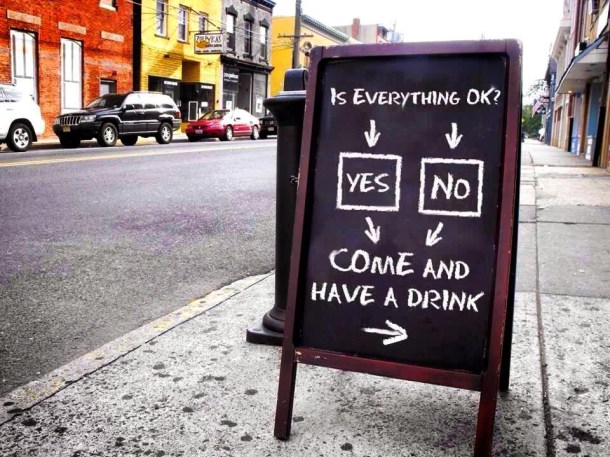 Is Everything OK?
YES NO
COME AND
HAVE A DRINK